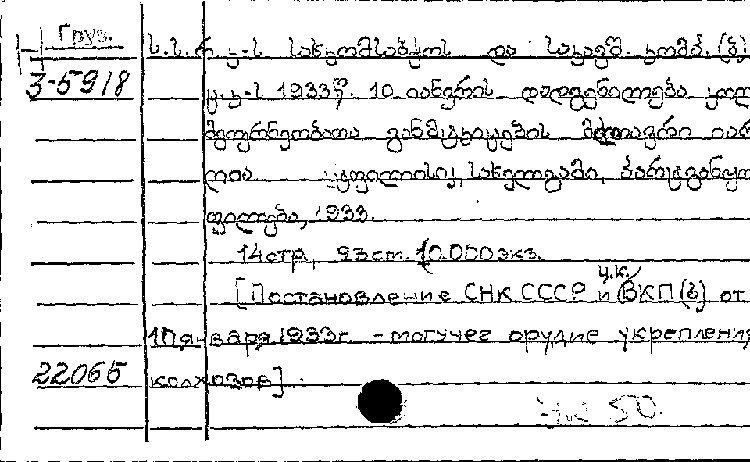 Груз.
3-5918
ს.ს.რ.კ.-ს სახკომსაბჭოს და საკავშ. კომპ. (ბ)
ც.კ-ს 1933 წ. 10 იანვრის დადგენილება კოლ
მეურნეობათა განმტკიცების მძლავრი იარ
ღია. ტფილისი, სახელგამი, პარტგანყო
ფილება, 1933.
14 стр, 93 ст. 10.000 экз.
[Постановление СНК СССР и ц.к. ВКП(б) от
10 января 1933 г. - могучее орудие укрепления
22065 колхозов]
50.